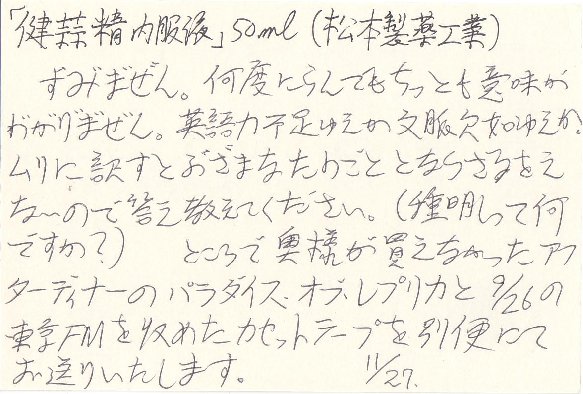 「健蒜精内服液」50ml (松本製薬工業)
すみません。何度にらんでもちっとも意味が
わかりません。英語力不足ゆえか文脈欠如ゆえか
ムリに訳すとおざなまなたわごととならざるをえ
ないので答え教えてください。(種明しって何
ですか?) ところで奥様が買えなかったアフ
ターディナーのパラダイス・オブ・レプリカと9/26の
東京FMを収めたカセットテープを別便にて
お送りいたします。 11/27.